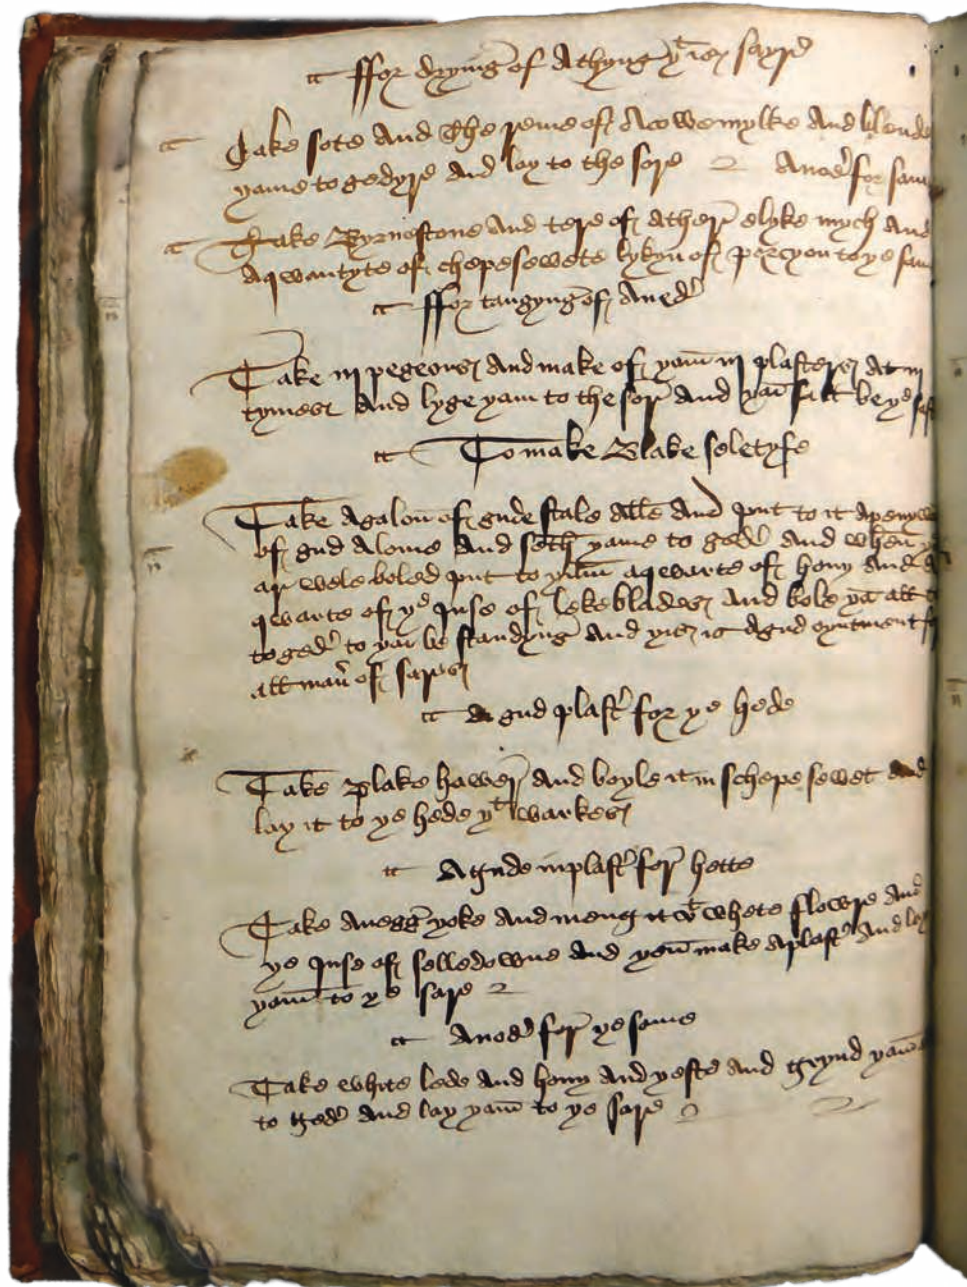 ffor dryyng of A thyng yt is sayre
Take sote And the reme of A cowe mylke And blende
yame to gedyre And lay to the sore Anoder for same
Take Brymstone And tere of athere elyke mych And
A qwantyte of chepe sewete lykyn of percyon to ye same
ffor tangyng of An eder
Take iij pegeons And make of yam iij plasters At iij
tymes And lyge yam to the sore And yai sall be
To make Blake soletyfe
Take A galon of gude stale alle And put to it A peny
of gud Alome And seth yame to geder And when
ar wele boled put to yam A qwarte of hony And A
qwarte of ye Juse of lekeblades And bole yam all
to geder to yai be standyng And yis is A gud oyntment
all maner of sares
A gud plaster for ye hede
Take Blake hawer And boyle it in schepe sewet And
lay it to ye hede yt warkes
A gude inplaster for hette
Take An egg yoke And meng it wt whete flowre And
ye Juse of selledowne And yam make A plaster And lay
yam to ye sare
Anoder for ye same
Take white lede And hony And yeste And grynd yam
to geder And lay yam to ye sare